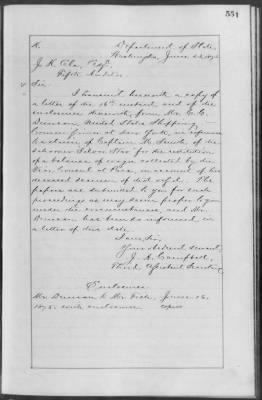 551
R.
Department of State,
Washington, June
J. H. Ela, Esq.
Fifth Auditor.
Sir:
I transmit herewith a copy of
a letter of the 16th instant, and of the
enclosures therewith, from Mr. C. C.
Duncan, United States Shipping-
Commissioner at New York, in reference
to a claim of Captain of the
schooner Silver Star for the restitution
of a balance of wages collected by the
Vice Consul at Para, on account of two
deceased seamen of that vessel. The
papers are submitted to you for such
proceedings as may seem proper to you
under the circumstances, and Mr.
Duncan has been so informed in
a letter of this date.
I am, Sir,
Your obedient servant,
J. A. Campbell,
Third Assistant Secretary.
Enclosures:
Mr. Duncan to Mr. Fish, June 16,
1875, with enclosures. copies